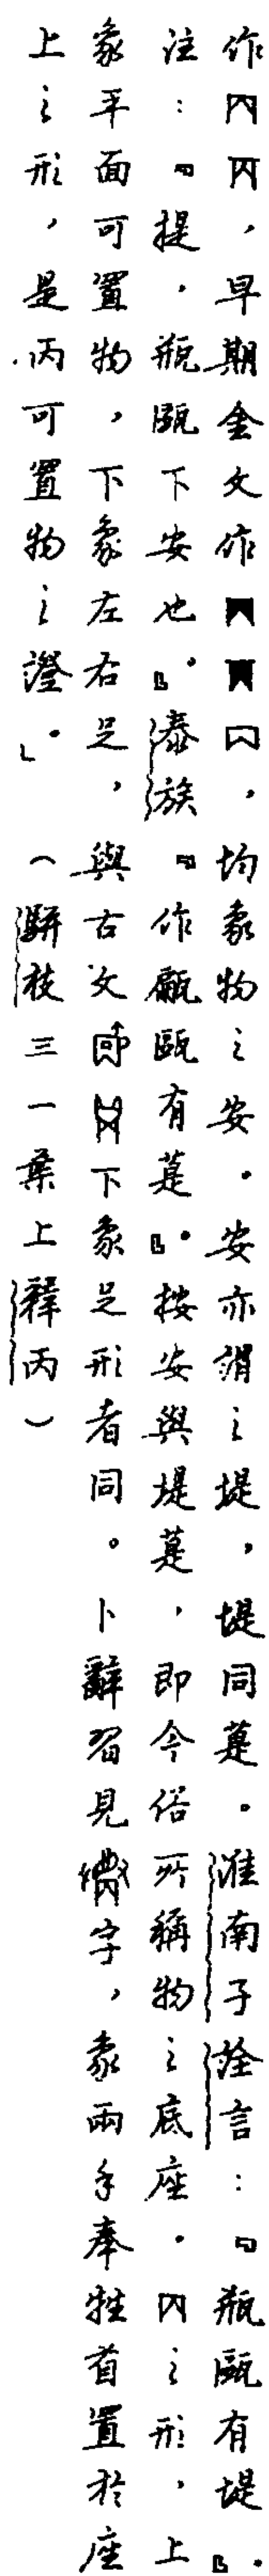 作，早期金文作，均象物之安。安亦謂之堤，堤同䔶。淮南子詮言：『瓶甌有堤』。
注：『堤，瓶甌下安也』。泰族『作甗甌有䔶』。按安與堤䔶，即今俗所稱物之底座。之形，上
象平面可置物，下象左右足，與古文下象足形者同。卜辭習見字，象兩手奉牲首置於座
上之形，是丙可置物之證。」（駢枝三一葉上釋丙）